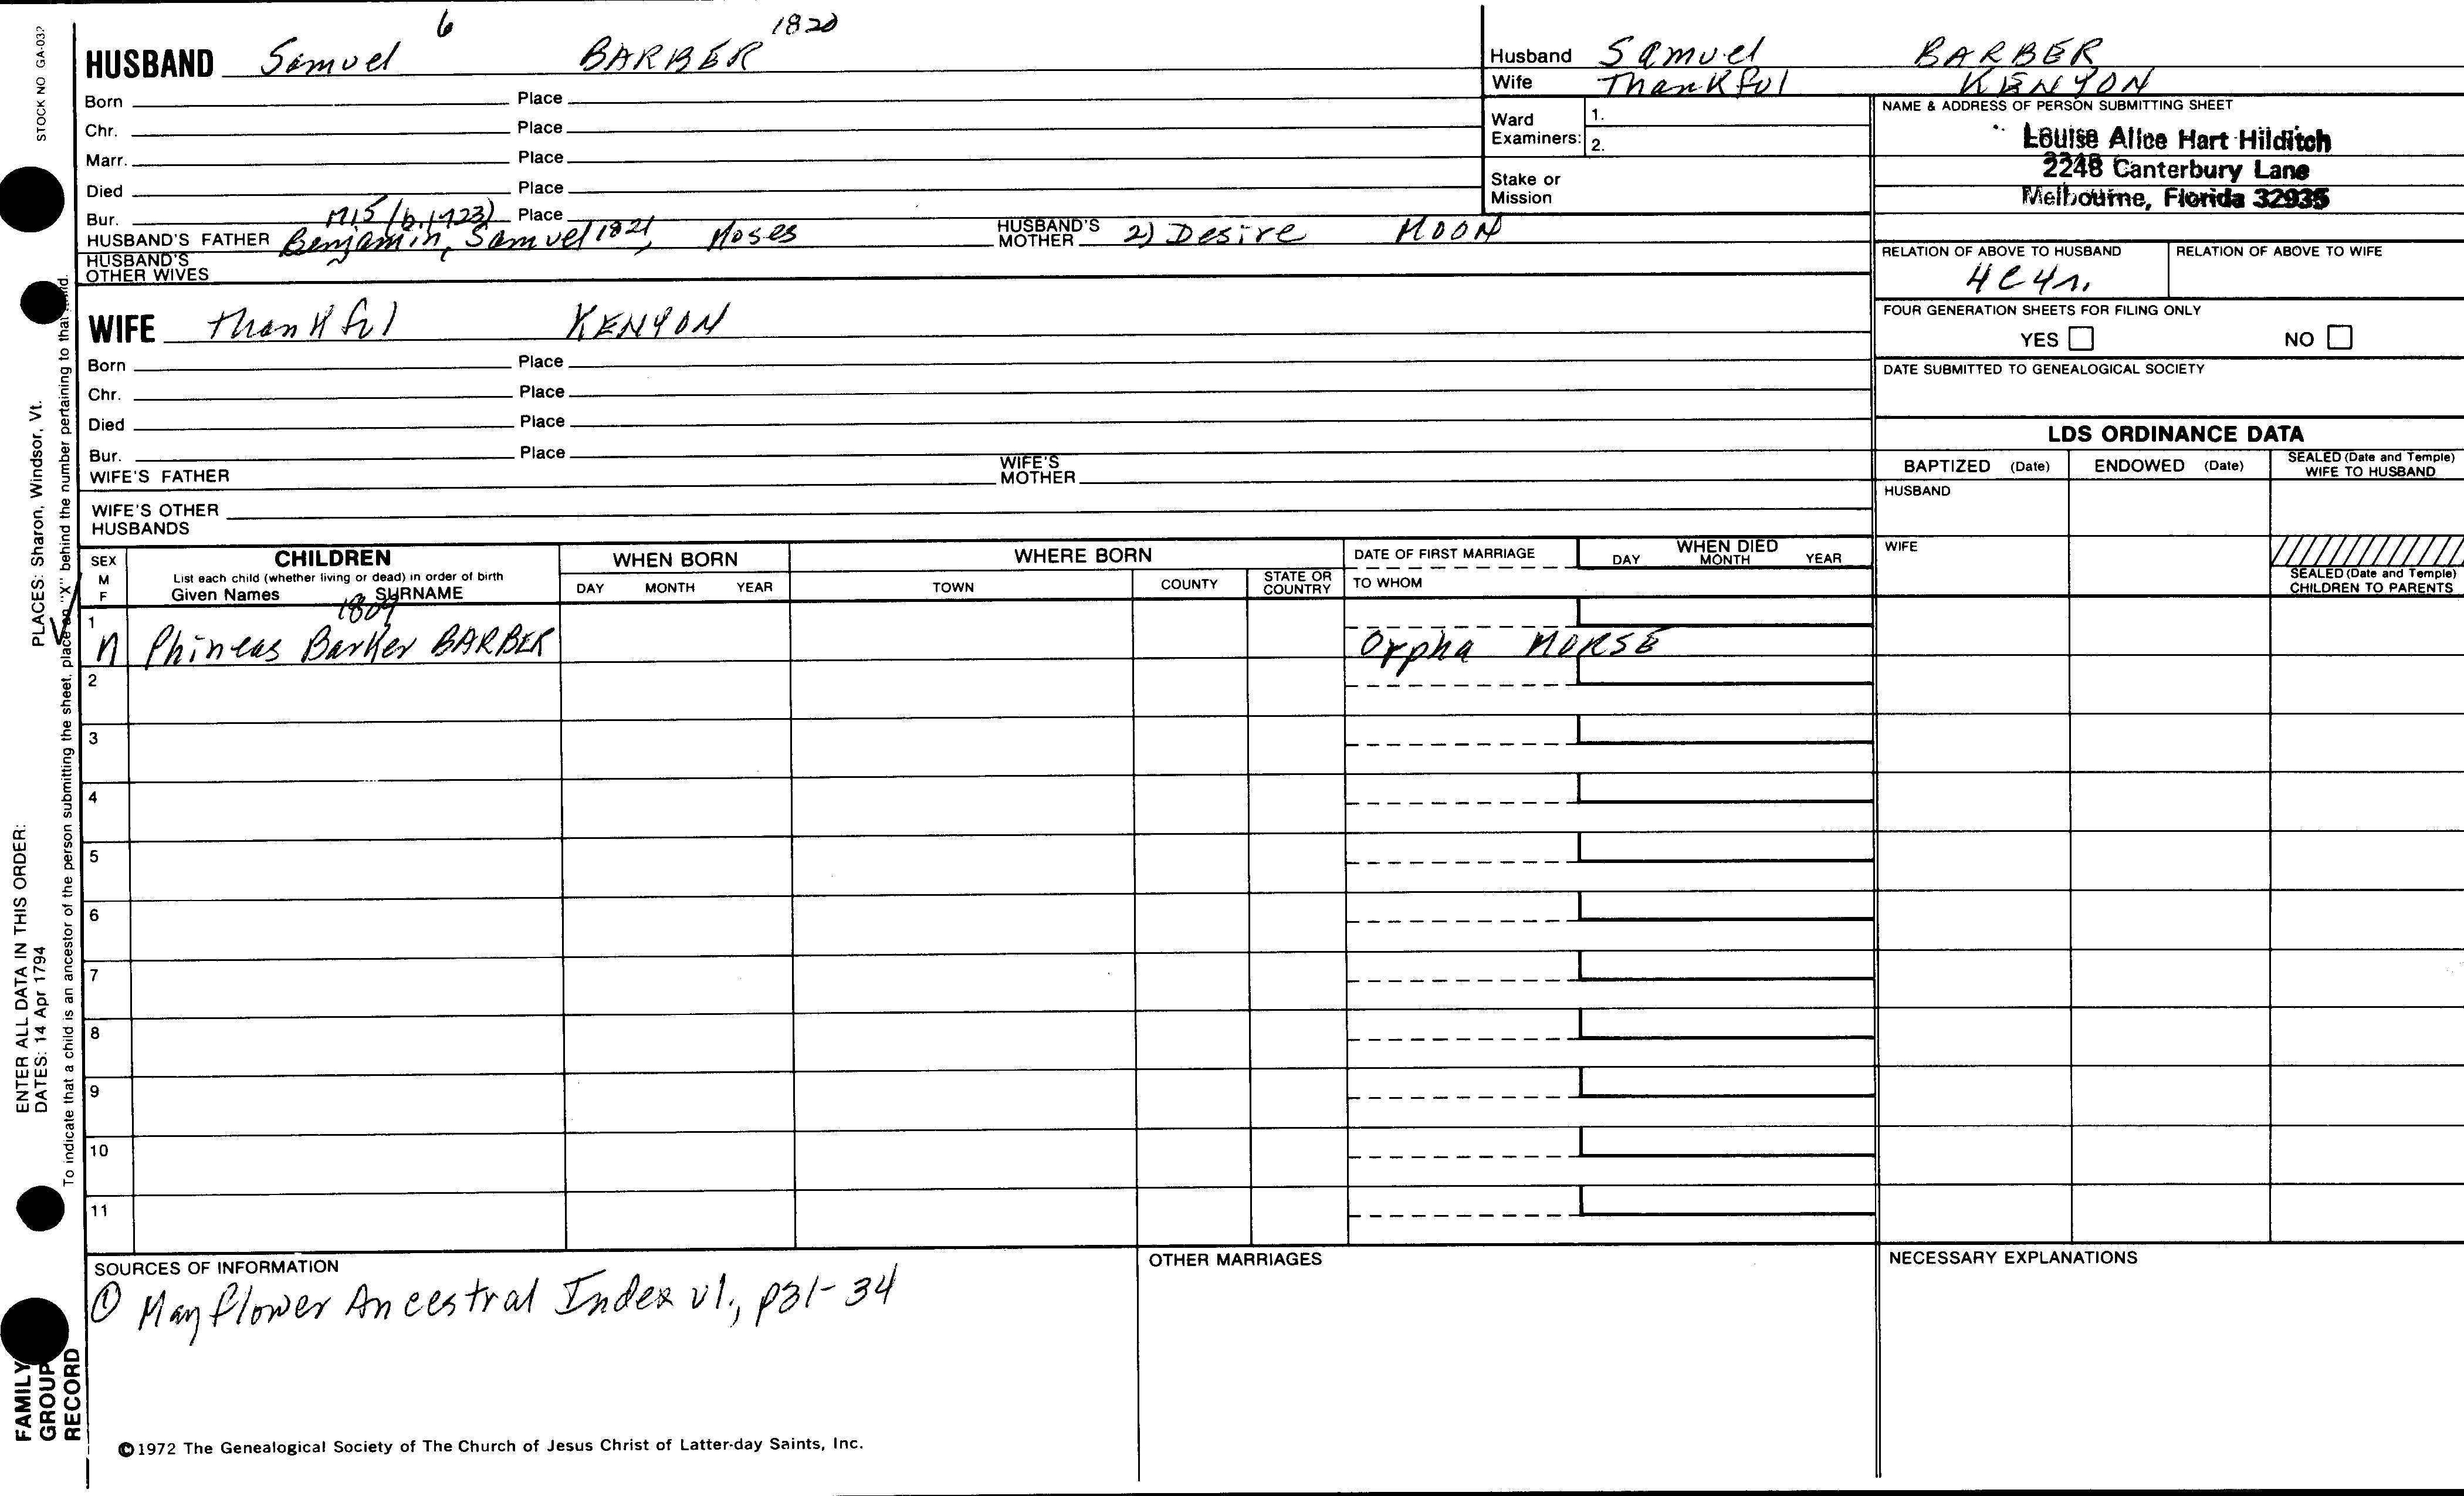 STOCK NO GA-032
6
1820
HUSBAND Samuel BARBER
Born Place
Chr. Place
Marr. Place
Died Place
Bur. Place
1715 (b. 1723)
HUSBAND'S FATHER Benjamin, Samuel 1821, Moses HUSBAND'S MOTHER 2) Desire MOON
HUSBAND'S OTHER WIVES
WIFE Thankful KENYON
Born Place
Chr. Place
Died Place
Bur. Place
WIFE'S FATHER WIFE'S MOTHER
WIFE'S OTHER HUSBANDS
Husband Samuel BARBER
Wife Thankful KENYON
Ward Examiners: 1.
2.
Stake or Mission
NAME & ADDRESS OF PERSON SUBMITTING SHEET
Louise Alice Hart Hilditch
2248 Canterbury Lane
Melbourne, Florida 32935
RELATION OF ABOVE TO HUSBAND RELATION OF ABOVE TO WIFE
4C4r.
FOUR GENERATION SHEETS FOR FILING ONLY
YES NO
DATE SUBMITTED TO GENEALOGICAL SOCIETY
LDS ORDINANCE DATA
BAPTIZED (Date) ENDOWED (Date) SEALED (Date and Temple) WIFE TO HUSBAND
HUSBAND
WIFE
SEALED (Date and Temple) CHILDREN TO PARENTS
SEX M F
CHILDREN
List each child (whether living or dead) in order of birth
Given Names SURNAME
WHEN BORN
DAY MONTH YEAR
WHERE BORN
TOWN COUNTY STATE OR COUNTRY
DATE OF FIRST MARRIAGE
TO WHOM
WHEN DIED
DAY MONTH YEAR
1809
1 M Phineas Barker BARBER Orpha MORSE
2
3
4
5
6
7
8
9
10
11
SOURCES OF INFORMATION
① Mayflower Ancestral Index v1., p31-34
OTHER MARRIAGES
NECESSARY EXPLANATIONS
©1972 The Genealogical Society of The Church of Jesus Christ of Latter-day Saints, Inc.
FAMILY GROUP RECORD
ENTER ALL DATA IN THIS ORDER:
DATES: 14 Apr 1794
PLACES: Sharon, Windsor, Vt.
To indicate that a child is an ancestor of the person submitting the sheet, place an "X" behind the number pertaining to that child.